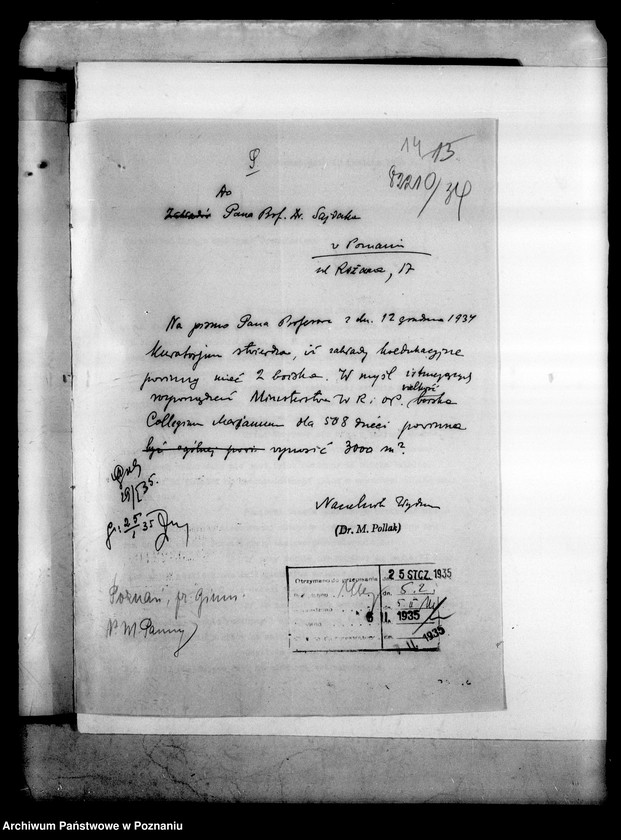 14 15.
82210/34
Do
Pana Prof. Dr. Sajdaka
w Poznaniu
ul Różana, 17
Na pismo Pana Profesora z dn. 12 grudnia 1934
Kuratorjum stwierdza, iż zakłady koedukacyjne
powinny mieć 2 boiska. W myśl istniejących
rozporządzeń Ministerstwa W R i O.P. wielkość boiska
Collegium Marianum dla 508 dzieci powinna
wynosić 3000 m².
Naczelnik Wydz
(Dr. M. Pollak)
Otrzymano do przepisania 25 STCZ. 1935
dn. 5.2.
6 II. 1935
7 II. 1935
Poznań, pr. Gimn.
N. M. Panny
Archiwum Państwowe w Poznaniu